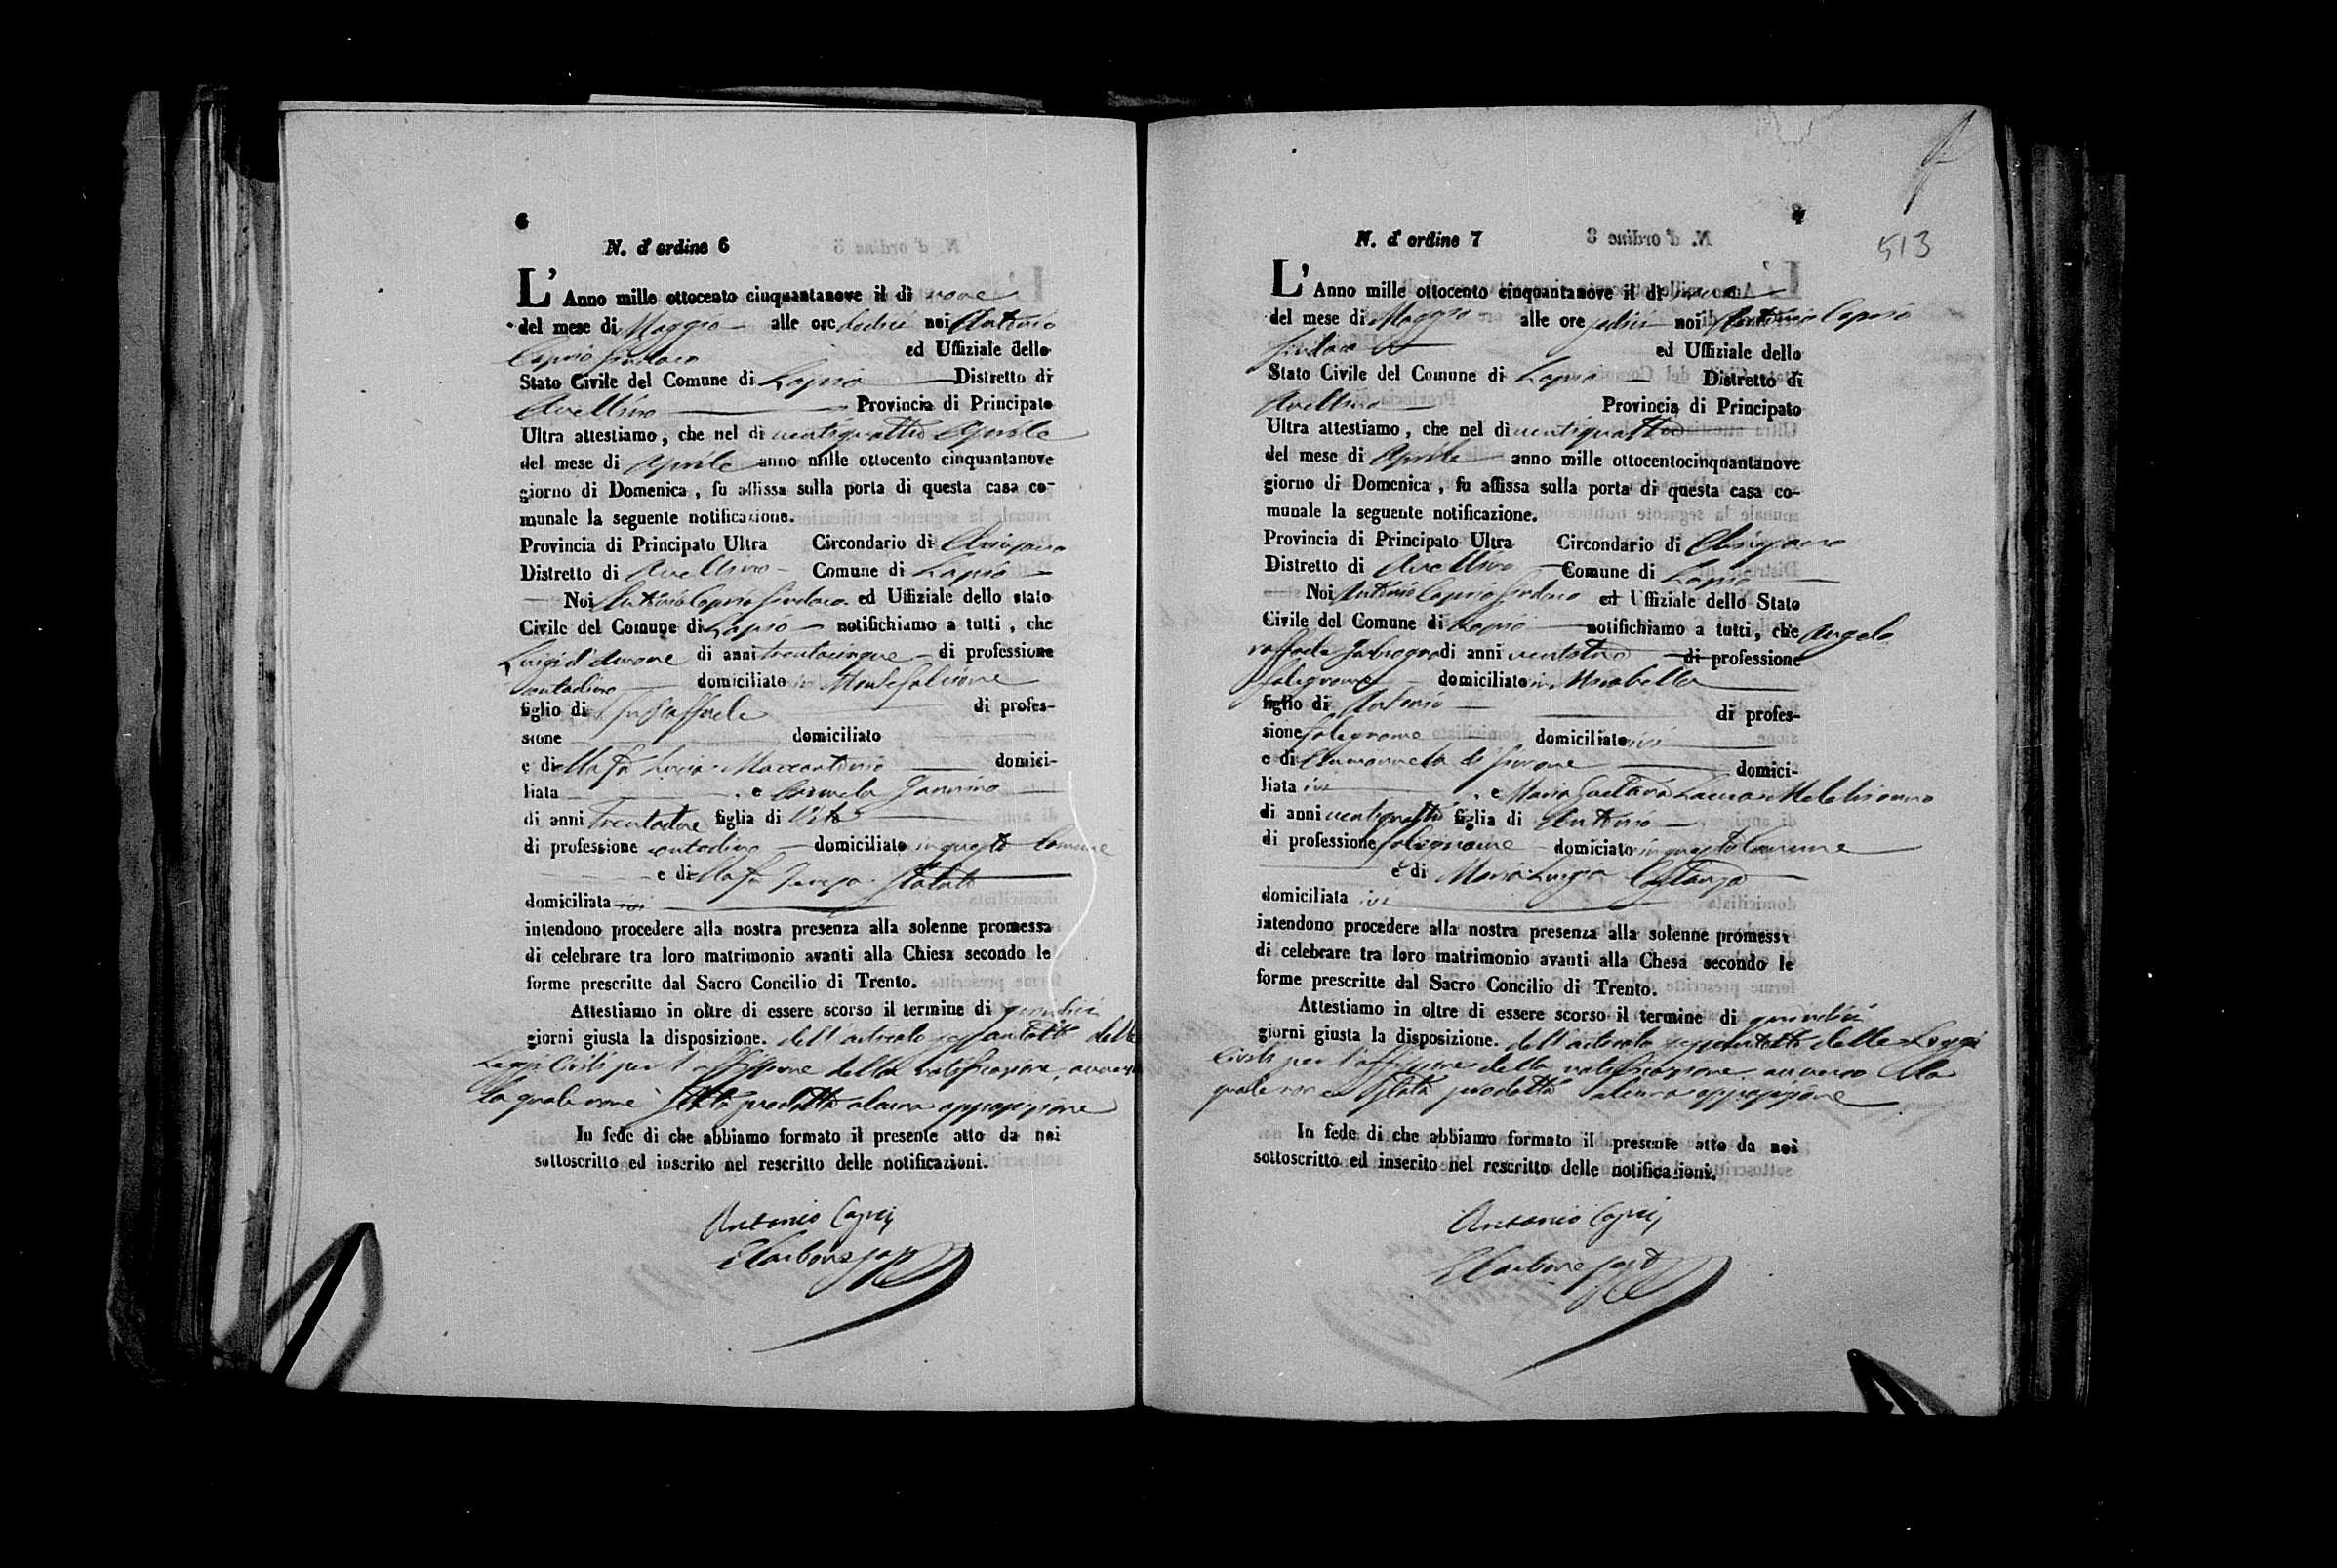 6
N. d' ordine 6
L' Anno mille ottocento cinquantanove il dì nove
del mese di Maggio alle ore dodici noi Antonio
Caprio Sindaco ed Uffiziale dello
Stato Civile del Comune di Lapio Distretto di
Avellino Provincia di Principato
Ultra attestiamo, che nel dì ventiquattro Aprile
del mese di Aprile anno mille ottocento cinquantanove
giorno di Domenica, fu affissa sulla porta di questa casa co-
munale la seguente notificazione.
Provincia di Principato Ultra Circondario di
Distretto di Avellino Comune di Lapio
Noi Antonio Caprio Sindaco ed Uffiziale dello stato
Civile del Comune di Lapio notifichiamo a tutti, che
Luigi d' di anni trentacinque di professione
contadino domiciliato in Montefalcione
figlio di fu Raffaele di profes-
sione domiciliato
e di domici-
liata e Carmela
di anni trentadue figlia di Vito
di professione contadino domiciliato in questo Comune
e di
domiciliata
intendono procedere alla nostra presenza alla solenne promessa
di celebrare tra loro matrimonio avanti alla Chiesa secondo le
forme prescritte dal Sacro Concilio di Trento.
Attestiamo in oltre di essere scorso il termine di quindici
giorni giusta la disposizione. dell'articolo delle
Leggi Civili per l'affissione della notificazione,
la quale non è stata prodotta alcuna opposizione
In fede di che abbiamo formato il presente atto da noi
sottoscritto ed inserito nel rescritto delle notificazioni.
Antonio Caprio
Carbone
513
N. d' ordine 7
L' Anno mille ottocento cinquantanove il dì nove
del mese di Maggio alle ore noi Antonio Caprio
Sindaco ed Uffiziale dello
Stato Civile del Comune di Lapio Distretto di
Avellino Provincia di Principato
Ultra attestiamo, che nel dì ventiquattro
del mese di Aprile anno mille ottocentocinquantanove
giorno di Domenica, fu affissa sulla porta di questa casa co-
munale la seguente notificazione.
Provincia di Principato Ultra Circondario di
Distretto di Avellino Comune di Lapio
Noi Antonio Caprio Sindaco ed Uffiziale dello Stato
Civile del Comune di Lapio notifichiamo a tutti, che Angelo
di anni di professione
falegname domiciliato in Mirabella
figlio di Antonio di profes-
sione falegname domiciliato ivi
e di domici-
liata ivi e Maria Gaetana
di anni ventiquattro figlia di Antonio
di professione falegname domiciato in questo Comune
e di Maria Luigia Costanza
domiciliata ivi
intendono procedere alla nostra presenza alla solenne promessa
di celebrare tra loro matrimonio avanti alla Chesa secondo le
forme prescritte dal Sacro Concilio di Trento.
Attestiamo in oltre di essere scorso il termine di quindici
giorni giusta la disposizione. dell'articolo delle Leggi
Civili per l'affissione della notificazione, la
quale non è stata prodotta alcuna opposizione
In fede di che abbiamo formato il presente atto da noi
sottoscritto ed inserito nel rescritto delle notificazioni.
Antonio Caprio
Carbone